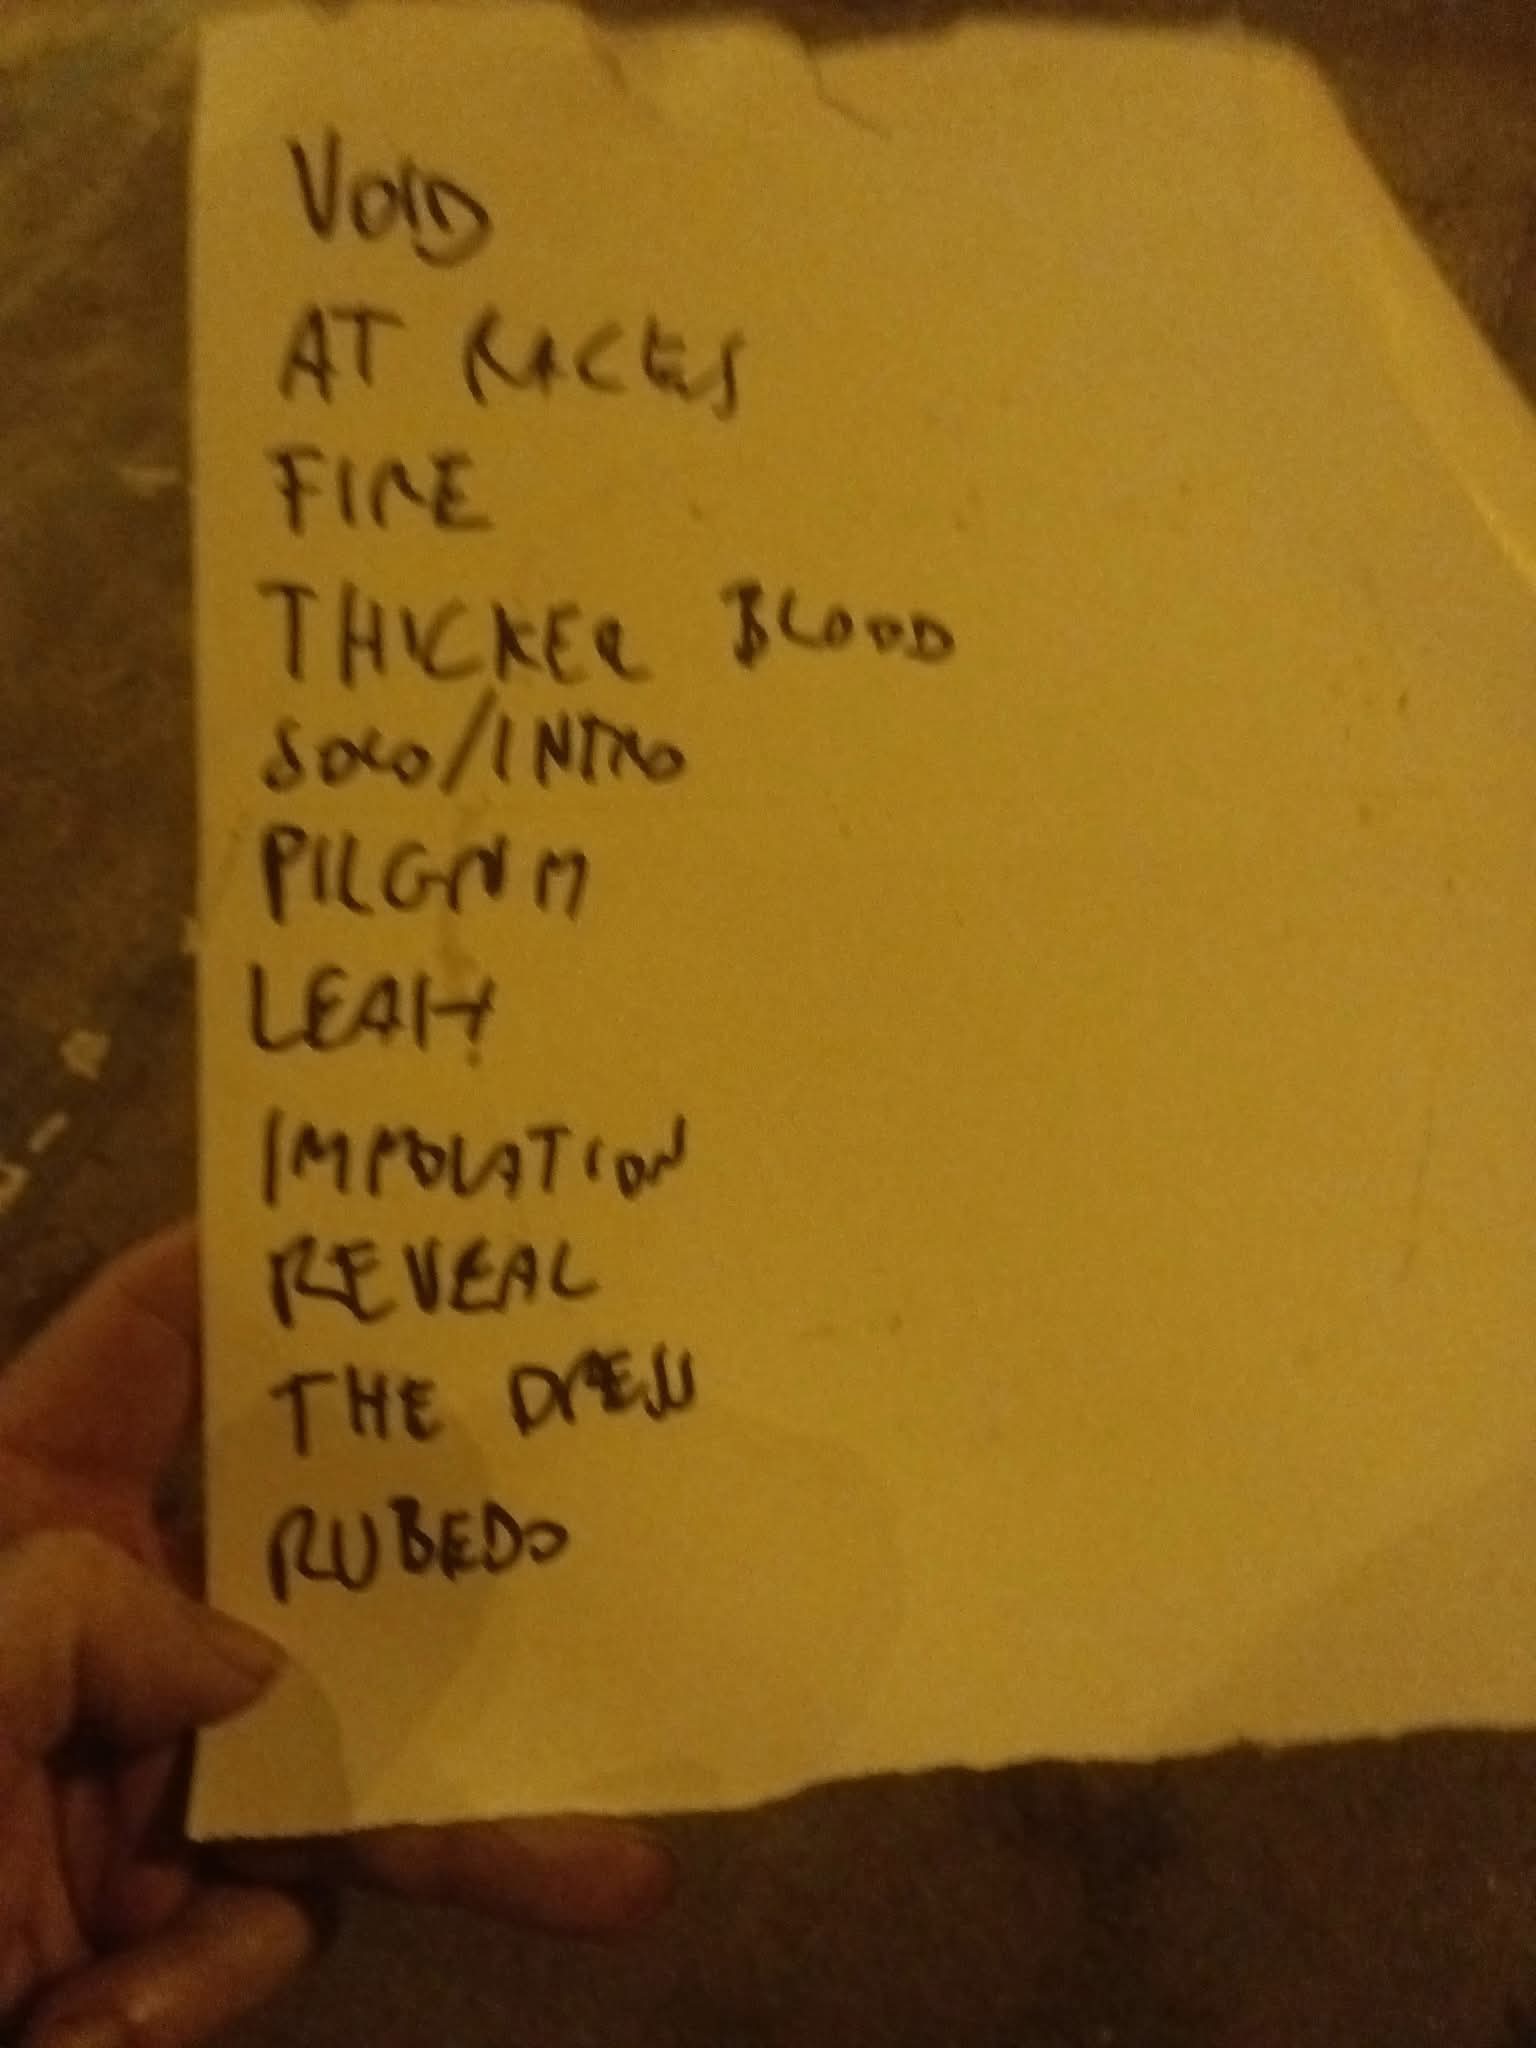 VOID
AT RACES
FIRE
THICKER BLOOD
SOLO/INTRO
PILGRIM
LEAH
IMMOLATION
REVEAL
THE DRESS
RUBEDO